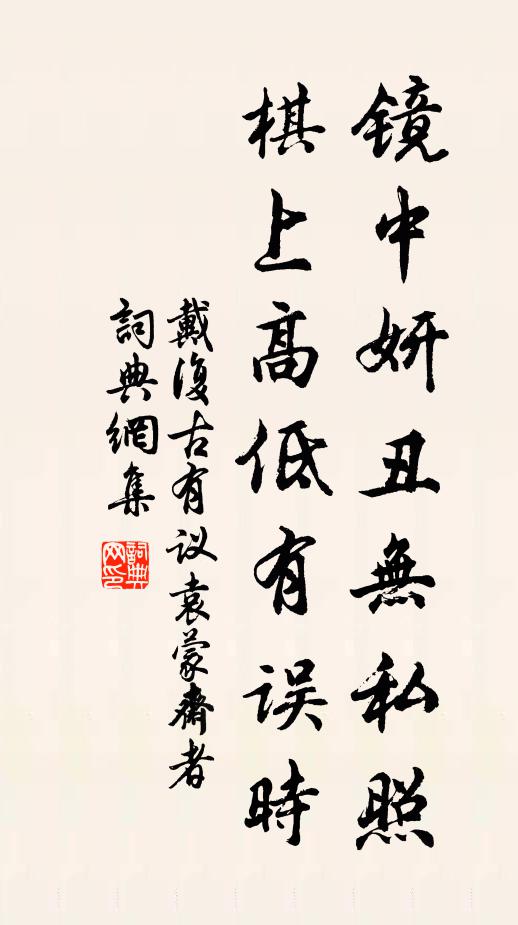 镜中妍丑無私照
棋上高低有误時
戴復古有议袁蒙齋者
詞典網集
詞典
网印